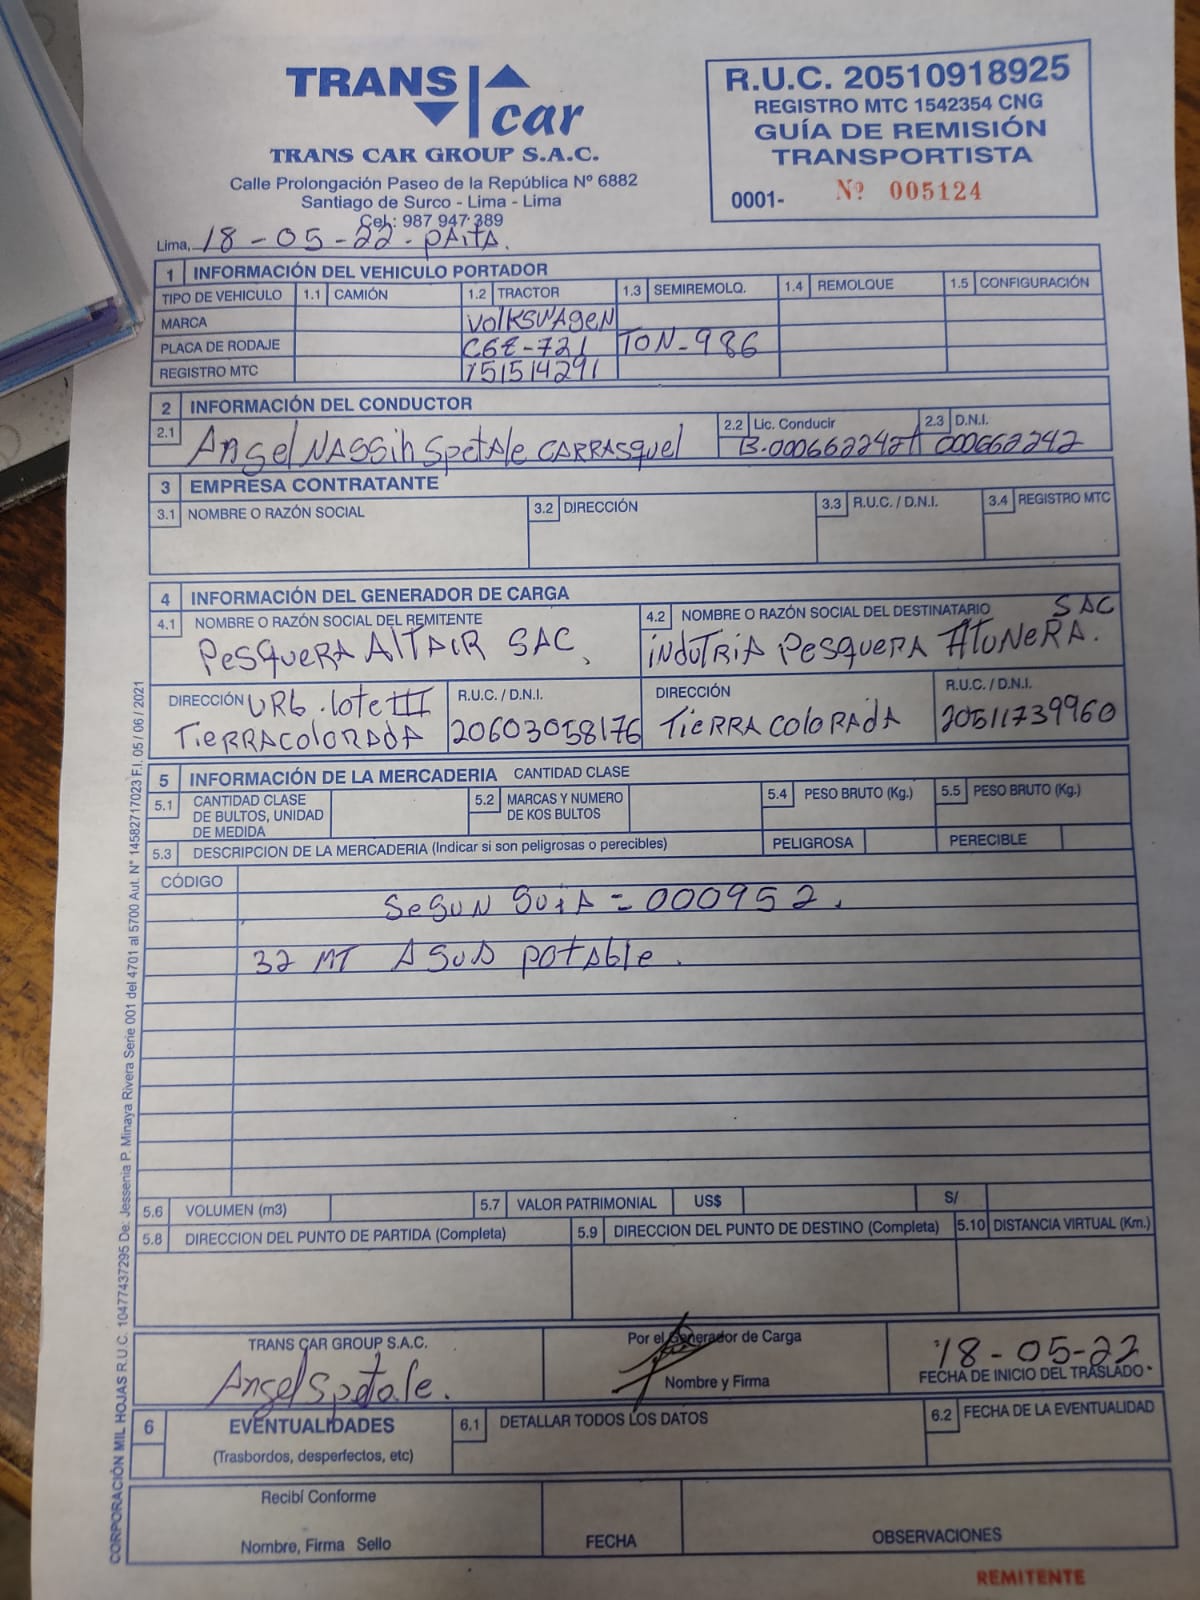 TRANS car
TRANS CAR GROUP S.A.C.
Calle Prolongación Paseo de la República Nº 6882
Santiago de Surco - Lima - Lima
Cel.: 987 947 389
R.U.C. 20510918925
REGISTRO MTC 1542354 CNG
GUÍA DE REMISIÓN
TRANSPORTISTA
0001- Nº 005124
Lima, 18-05-22. PAitA.
1 INFORMACIÓN DEL VEHICULO PORTADOR
TIPO DE VEHICULO 1.1 CAMIÓN 1.2 TRACTOR 1.3 SEMIREMOLQ. 1.4 REMOLQUE 1.5 CONFIGURACIÓN
MARCA VolKSWAgeN
PLACA DE RODAJE C6E-721 TON-986
REGISTRO MTC 151514291
2 INFORMACIÓN DEL CONDUCTOR
2.1 Angel NASSih SpetAle CARRASquel 2.2 Lic. Conducir B.000662242 2.3 D.N.I. 000662242
3 EMPRESA CONTRATANTE
3.1 NOMBRE O RAZÓN SOCIAL 3.2 DIRECCIÓN 3.3 R.U.C. / D.N.I. 3.4 REGISTRO MTC
4 INFORMACIÓN DEL GENERADOR DE CARGA
4.1 NOMBRE O RAZÓN SOCIAL DEL REMITENTE 4.2 NOMBRE O RAZÓN SOCIAL DEL DESTINATARIO SAC
PesqueRA AlTAIR SAC. iNduTRiA PesqueRA AtuNeRA.
DIRECCIÓN URb. lote III R.U.C. / D.N.I. DIRECCIÓN R.U.C. / D.N.I.
TieRRAcoloRAdA 20603058176 TieRRA coloRAdA 20511739960
5 INFORMACIÓN DE LA MERCADERIA CANTIDAD CLASE
5.1 CANTIDAD CLASE DE BULTOS, UNIDAD DE MEDIDA 5.2 MARCAS Y NUMERO DE KOS BULTOS 5.4 PESO BRUTO (Kg.) 5.5 PESO BRUTO (Kg.)
5.3 DESCRIPCION DE LA MERCADERIA (Indicar si son peligrosas o perecibles) PELIGROSA PERECIBLE
CÓDIGO
SeguN guiA = 000952.
32 MT AguA potAble.
5.6 VOLUMEN (m3) 5.7 VALOR PATRIMONIAL US$ S/
5.8 DIRECCION DEL PUNTO DE PARTIDA (Completa) 5.9 DIRECCION DEL PUNTO DE DESTINO (Completa) 5.10 DISTANCIA VIRTUAL (Km.)
TRANS CAR GROUP S.A.C. Por el Generador de Carga 18-05-22
Angel Spetale. Nombre y Firma FECHA DE INICIO DEL TRASLADO
6 EVENTUALIDADES 6.1 DETALLAR TODOS LOS DATOS 6.2 FECHA DE LA EVENTUALIDAD
(Trasbordos, desperfectos, etc)
Recibí Conforme
Nombre, Firma Sello FECHA OBSERVACIONES
REMITENTE
CORPORACIÓN MIL HOJAS R.U.C. 10477437295 De: Jessenia P. Minaya Rivera Serie 001 del 4701 al 5700 Aut. N° 14582717023 F.I. 05 / 06 / 2021